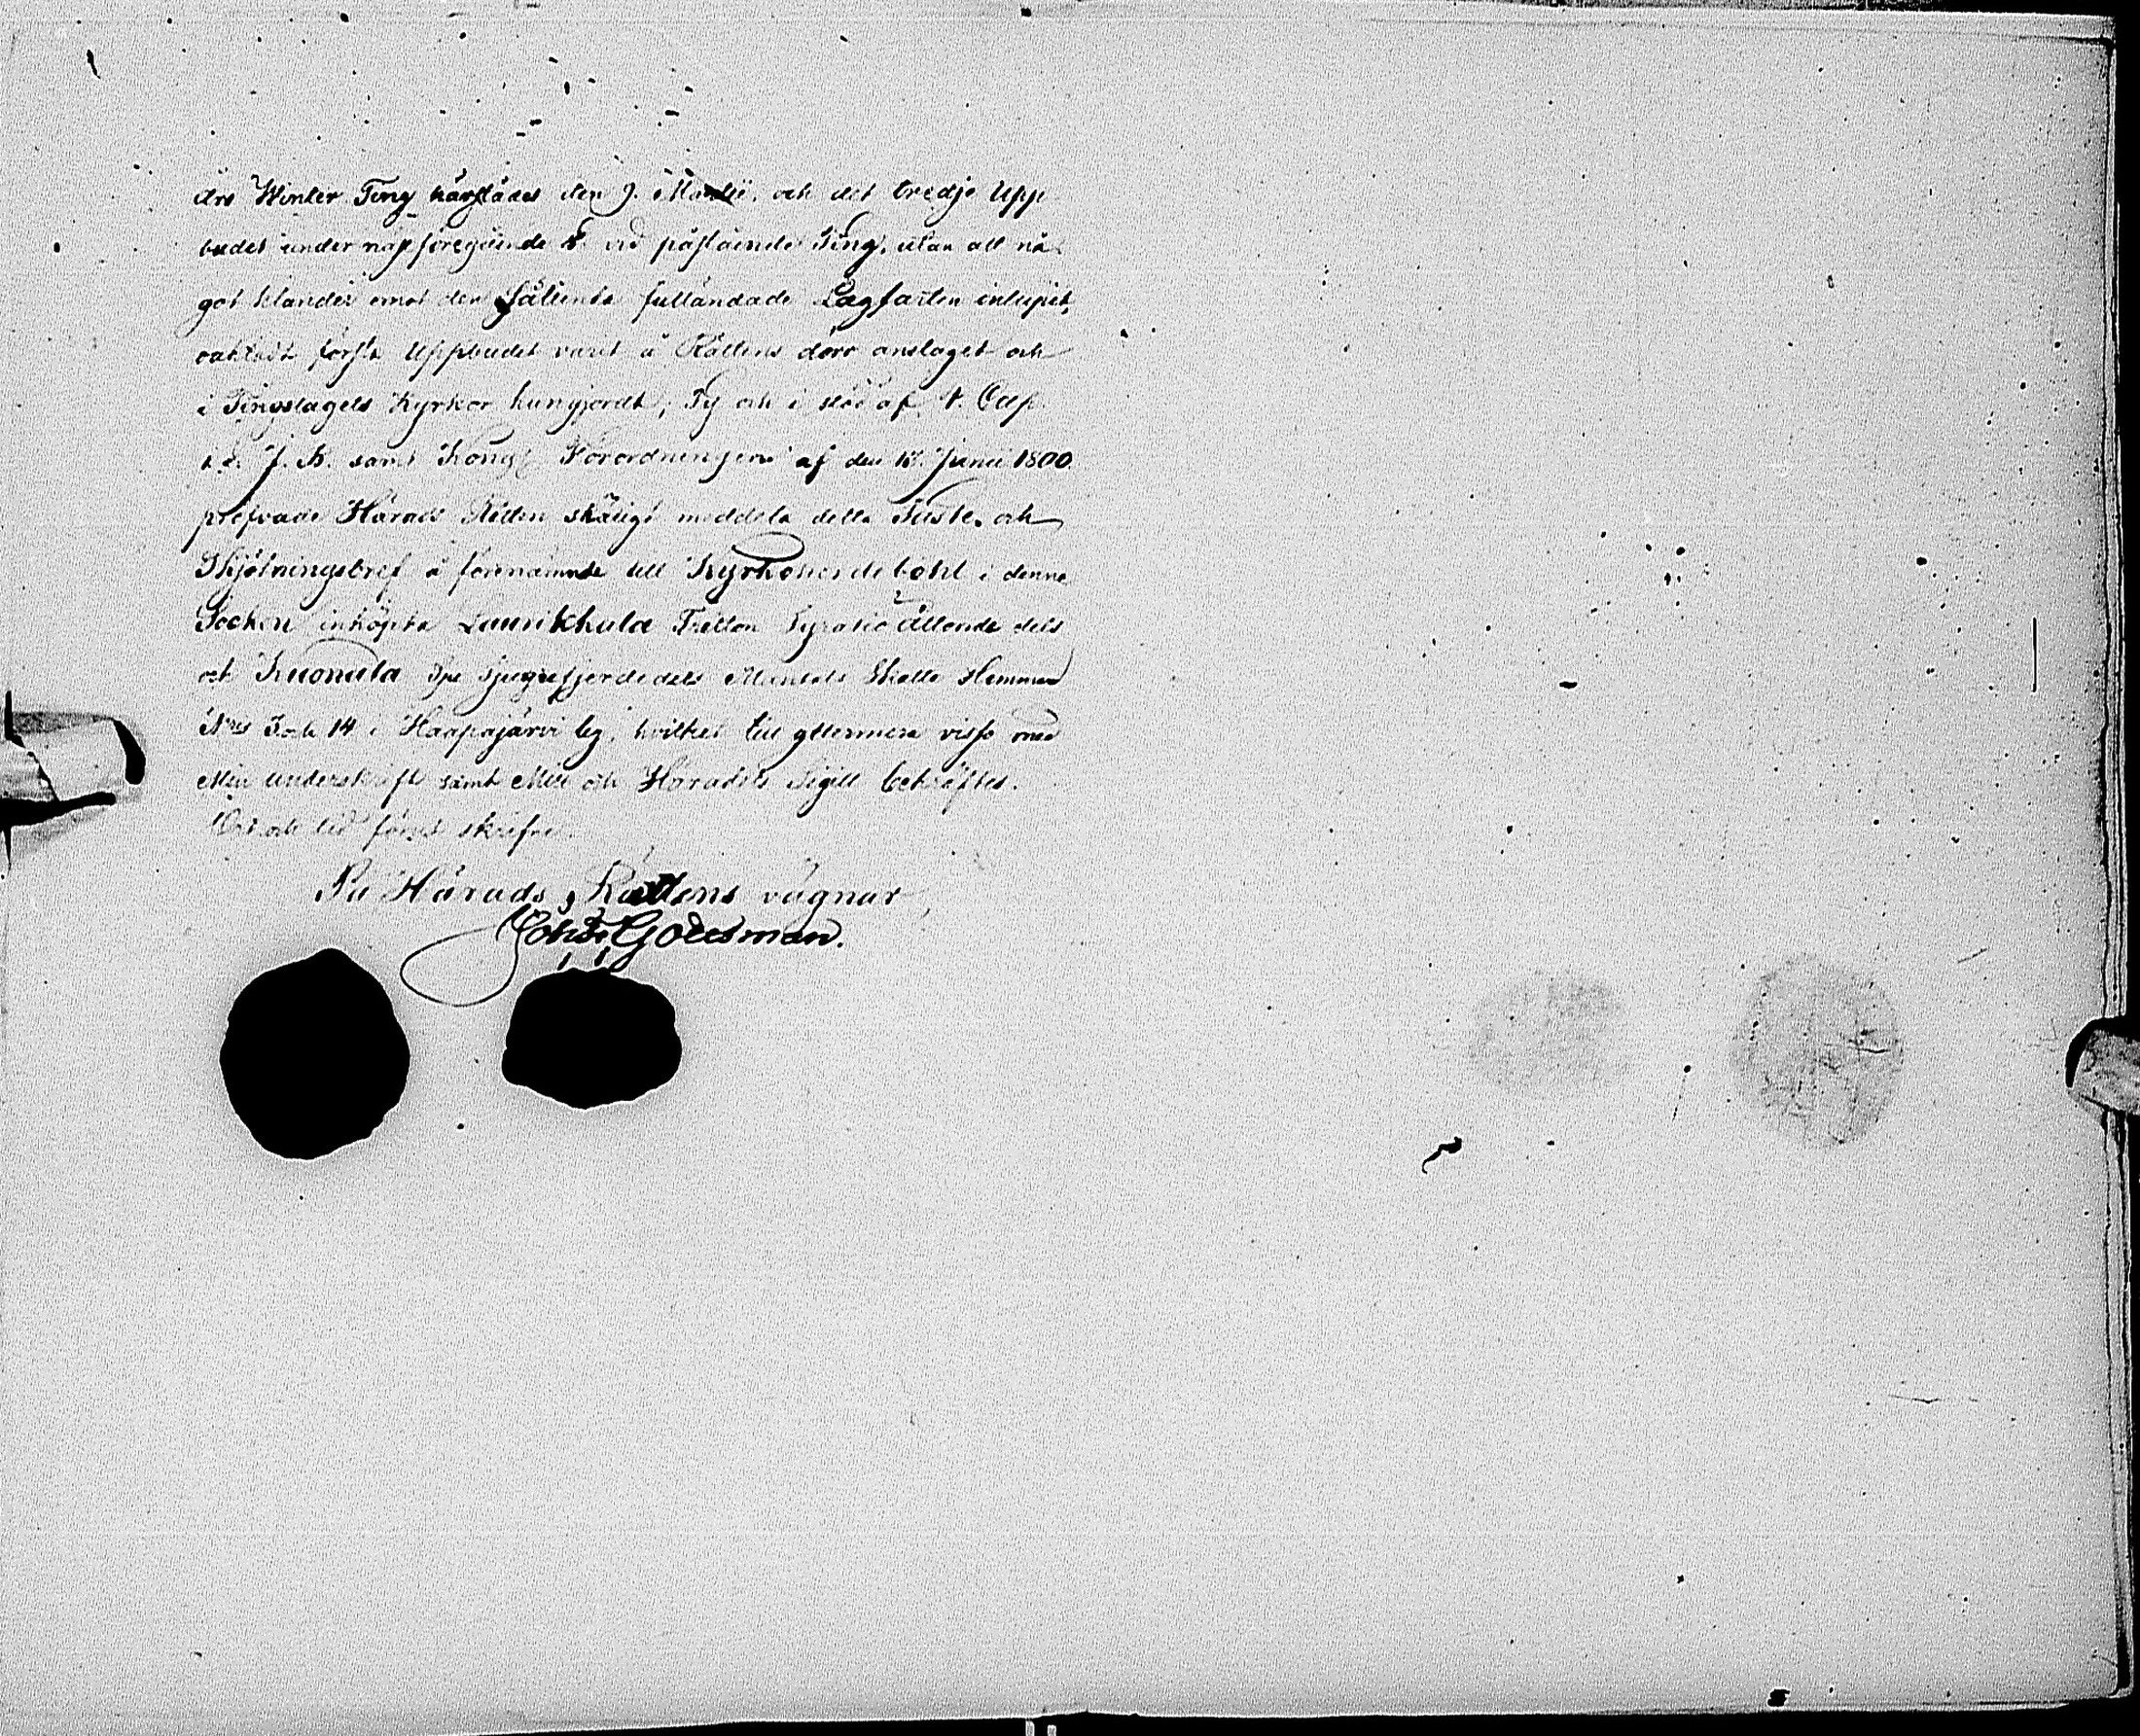 års Winter Ting härstädes den 9. Martii, och det tredje Upp
budet under näst föregående § vid påstående Ting, utan att nå
got klander emot den sålunda fulländade Lagfarten inlupit,
oaktadt första Uppbudet varit å Rättens dörr anslaget och
i Tingslagets Kyrkor kungjordt; Ty och i stöd af 4. Cap.
J. B. samt Kongl. Förordningen af den 13. Junii 1800.
pröfvade Härads Rätten skäligt meddela detta Faste och
Skjötningsbref å förenämnde till Kyrkoherdeböhl i denna
Socken inköpta Laurikkala Tretton Fyratioåttonde dels
och Kuonula Tjugufjerdedels Mantals Skatte Hemman
N:ris 3 och 14 i Haapajärvi by, hvilket till yttermera visso med
Min underskrift samt Mitt och Häradets Sigill bekräftes.
Ort och tid förut skrefne.
På Härads Rättens vägnar,
Johan Godesman.